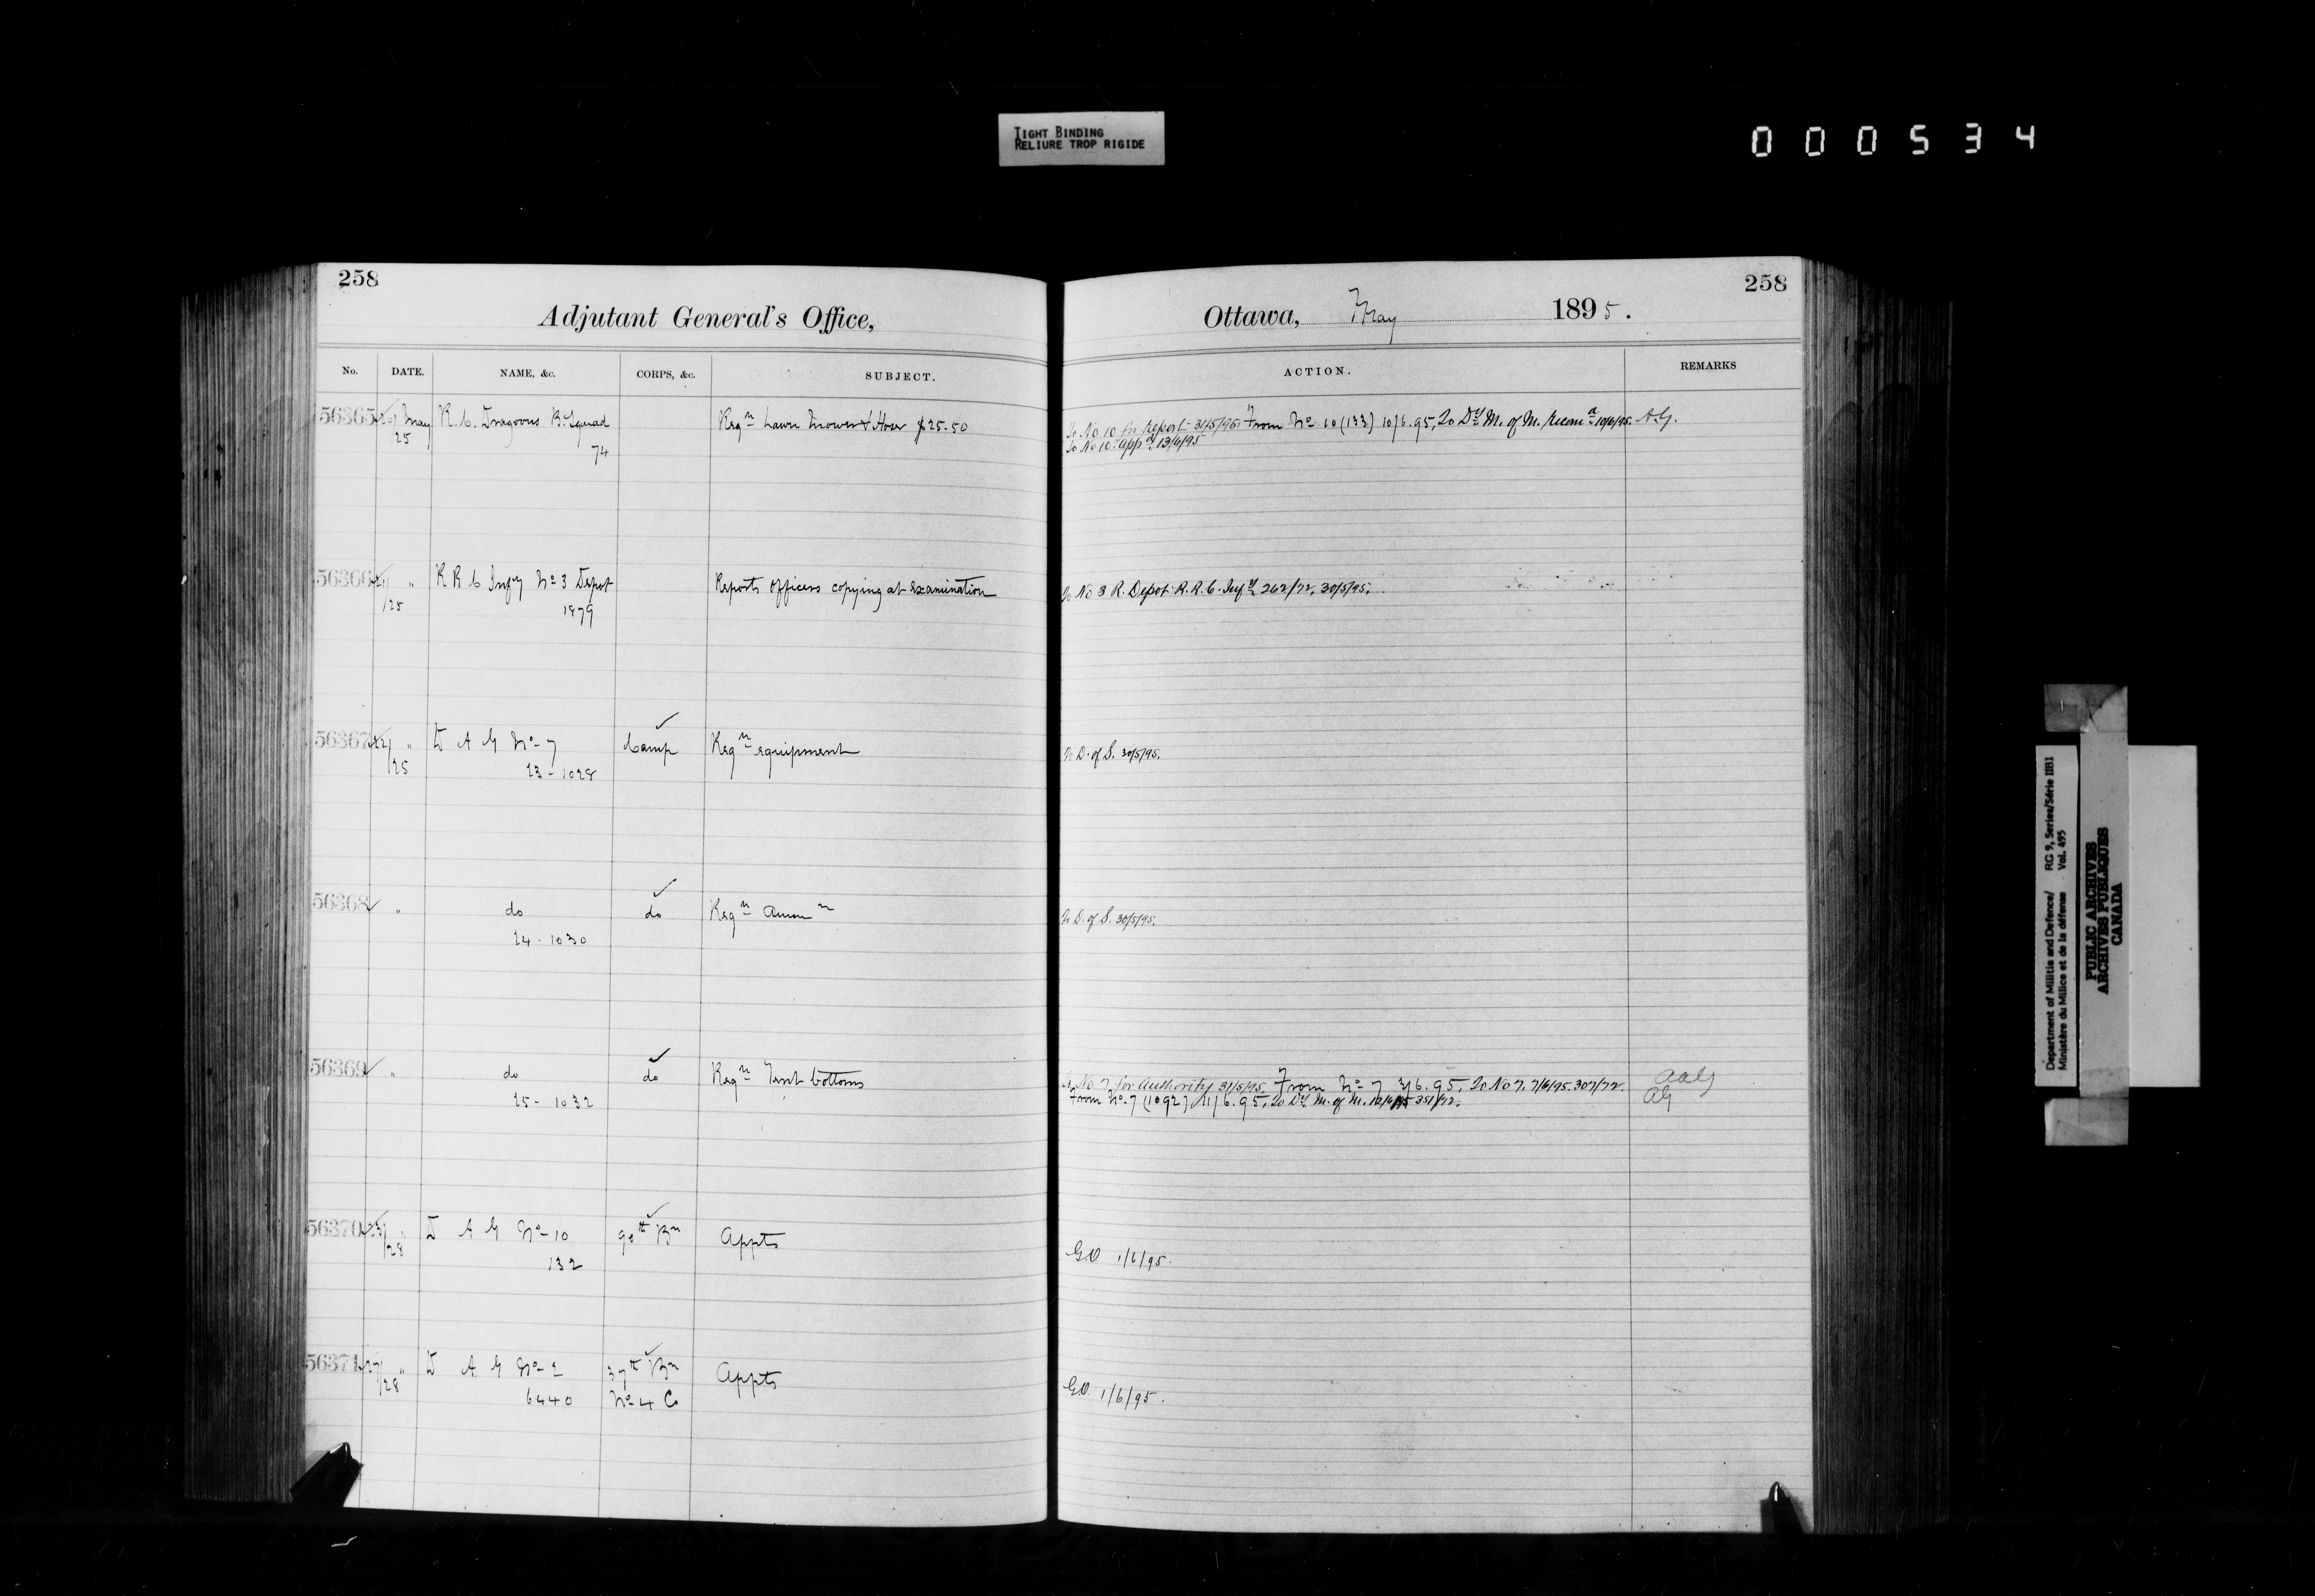 TIGHT BINDING
RELIURE TROP RIGIDE
000534
258
Adjutant General's Office,
No. DATE. NAME, &c. CORPS, &c. SUBJECT.
56365 May R. C. Dragoons B. Squad Reqn Lawn Mower & Hose $25.50
25 74
56366 " R R C Infy No 3 Depot Reports officers copying at examination
/25 1879
56367 22/ " D A G No 7 Camp Reqn equipment
/25 23-1028
56368 " do do Reqn Ammn
24-1030
56369 " do do Reqn Tent bottoms
25-1032
56370 23/ " D A G No 10 90th Bn Appts
/28 132
56371 27/ " D A G No 2 37th Bn Appts
/28 6440 No 4 Co
258
Ottawa, May 1895.
ACTION. REMARKS
To No 10 for report 31/5/95. From No 10 (133) 10/6.95, To Dy M. of M. recomd 10/6/95. AG.
To No 10 appd 13/6/95
To No 3 R. Depot R.R.C. Infy 262/72, 30/5/95.
To D. of S. 30/5/95.
To D. of S. 30/5/95.
To No 7 for Authority 31/5/95. From No 7 3/6.95. To No 7. 7/6/95. 307/72. AAG
From No. 7 (1092) 11/6.95, To Dy M. of M. 12/6/95 351/72. AG
GO 1/6/95.
GO 1/6/95.
Department of Militia and Defence/ RG 9, Series/Série IIB1
Ministère du Milice et de la défense Vol. 495
PUBLIC ARCHIVES
ARCHIVES PUBLIQUES
CANADA